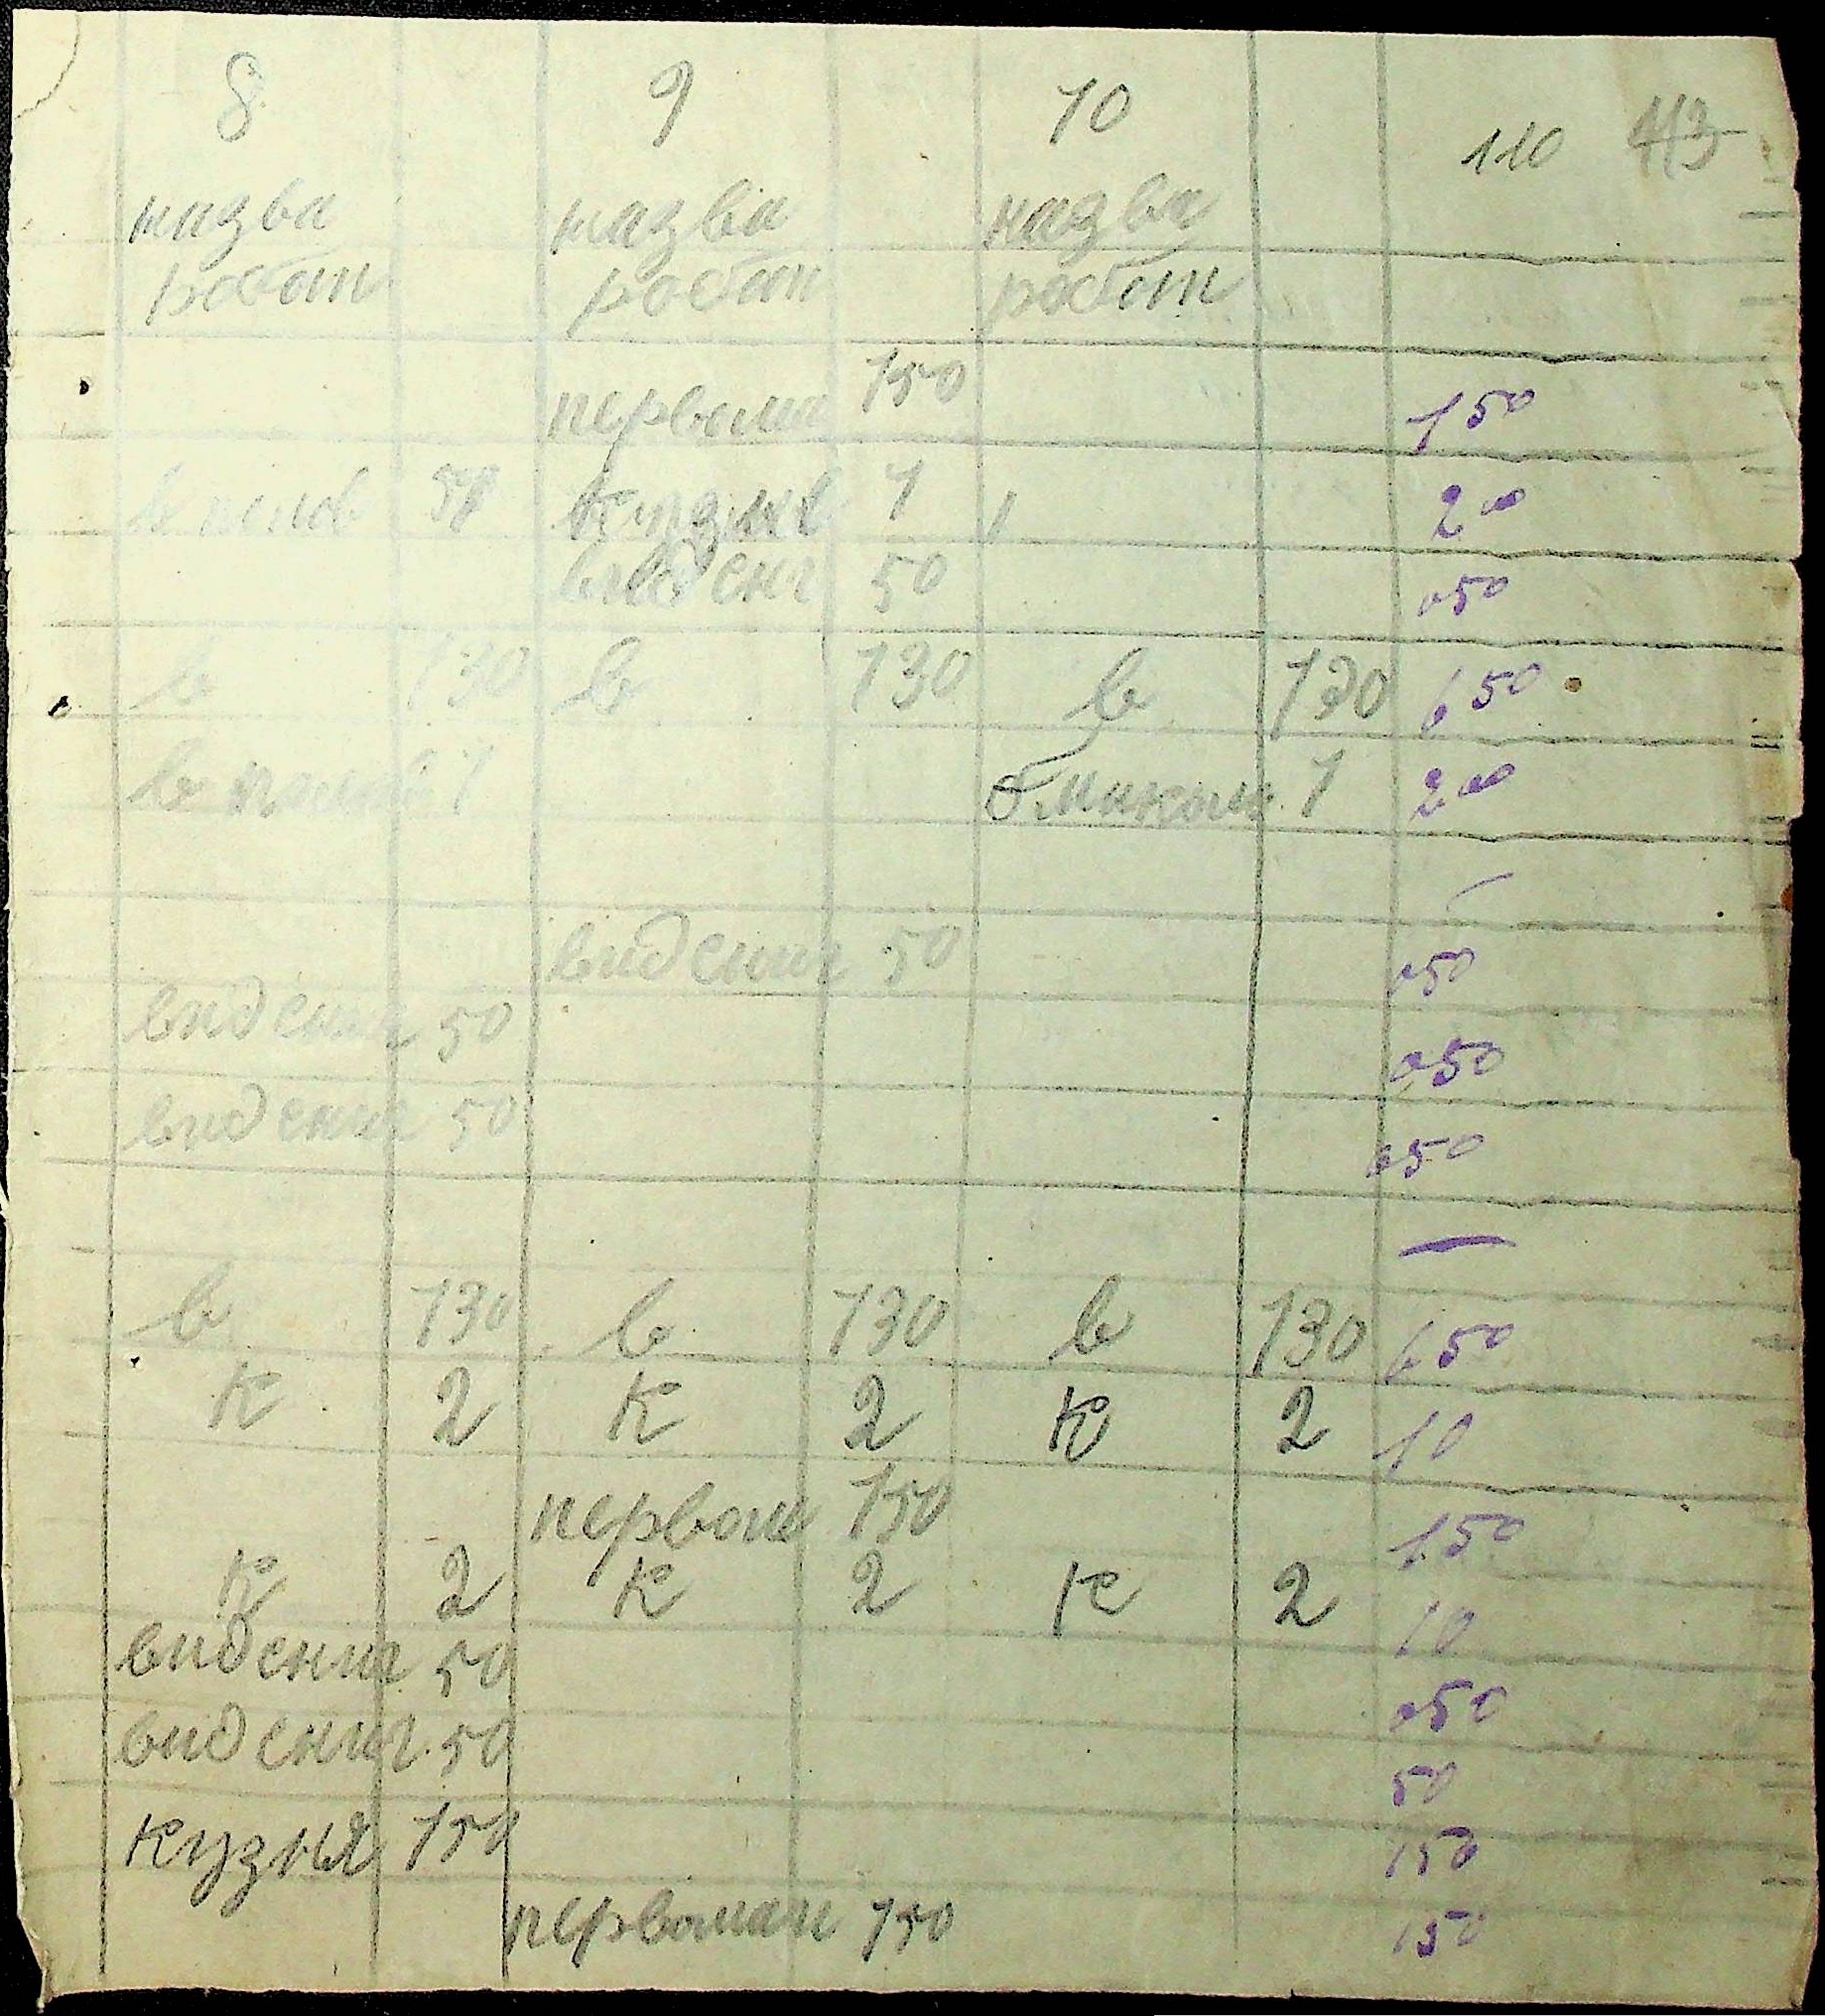 8 9 10 110 413
назва назва назва
робот робот робот
первома 150 1 50
50 кузня 1 2 00
виденг 50 0 50
в 130 в 130 в 130 6 50
в 1 1 2 00
видениг 50 0 50
видениг 50 0 50
видениг 50 0 50
—
в 130 в 130 в 130 6 50
к 2 к 2 к 2 10
первом 150 1 50
к 2 к 2 к 2 10
видениг 50 0 50
видениг 50 50
кузня 150 150
первоман 150 150